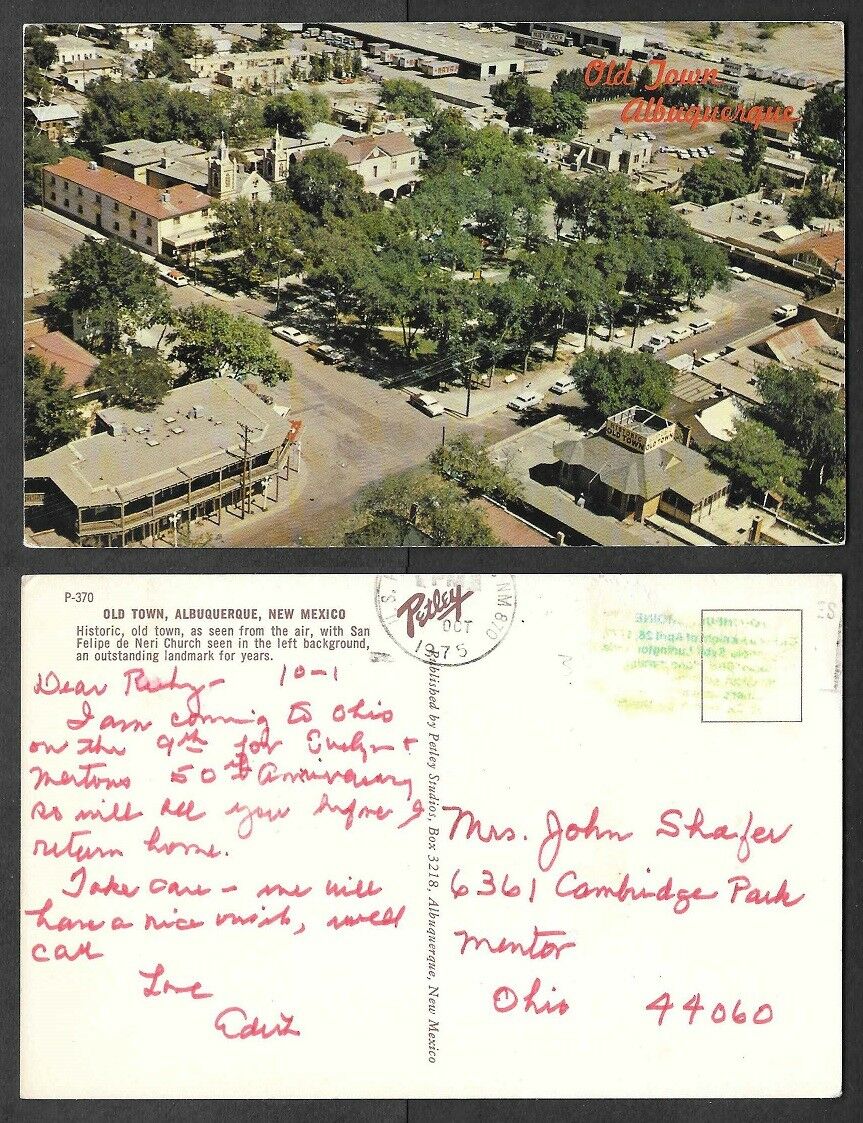 Old Town
Albuquerque
OLD TOWN
P-370
OLD TOWN, ALBUQUERQUE, NEW MEXICO
Historic, old town, as seen from the air, with San
Felipe de Neri Church seen in the left background,
an outstanding landmark for years.
Petley
OCT
1975
NM 870
Dear Ruby - 10-1
I am coming to Ohio
on the 9th for Evelyn &
Mertons 50th Anniversary
so will see you before I
return home.
Take care - we will
have a nice visit, will
call
Love
Edith
Published by Petley Studios, Box 3218, Albuquerque, New Mexico
Mrs. John Shafer
6361 Cambridge Park
Mentor
Ohio 44060